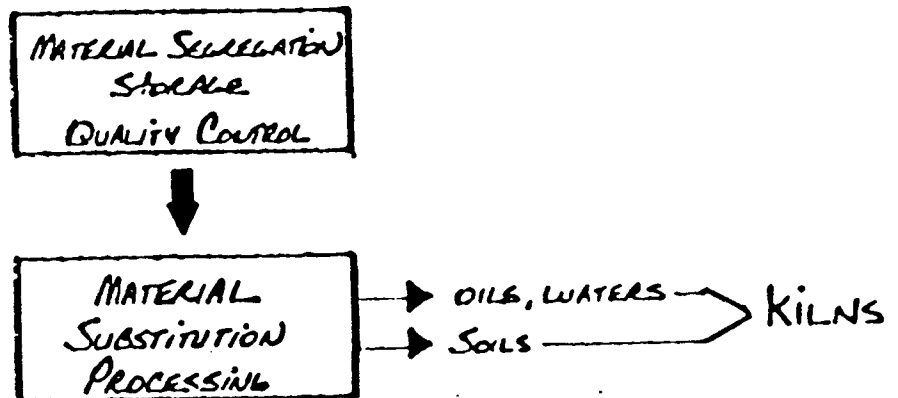 MATERIAL SEGREGATION
STORAGE
QUALITY CONTROL
MATERIAL
SUBSTITUTION
PROCESSING
OILS, WATERS
SOILS
KILNS